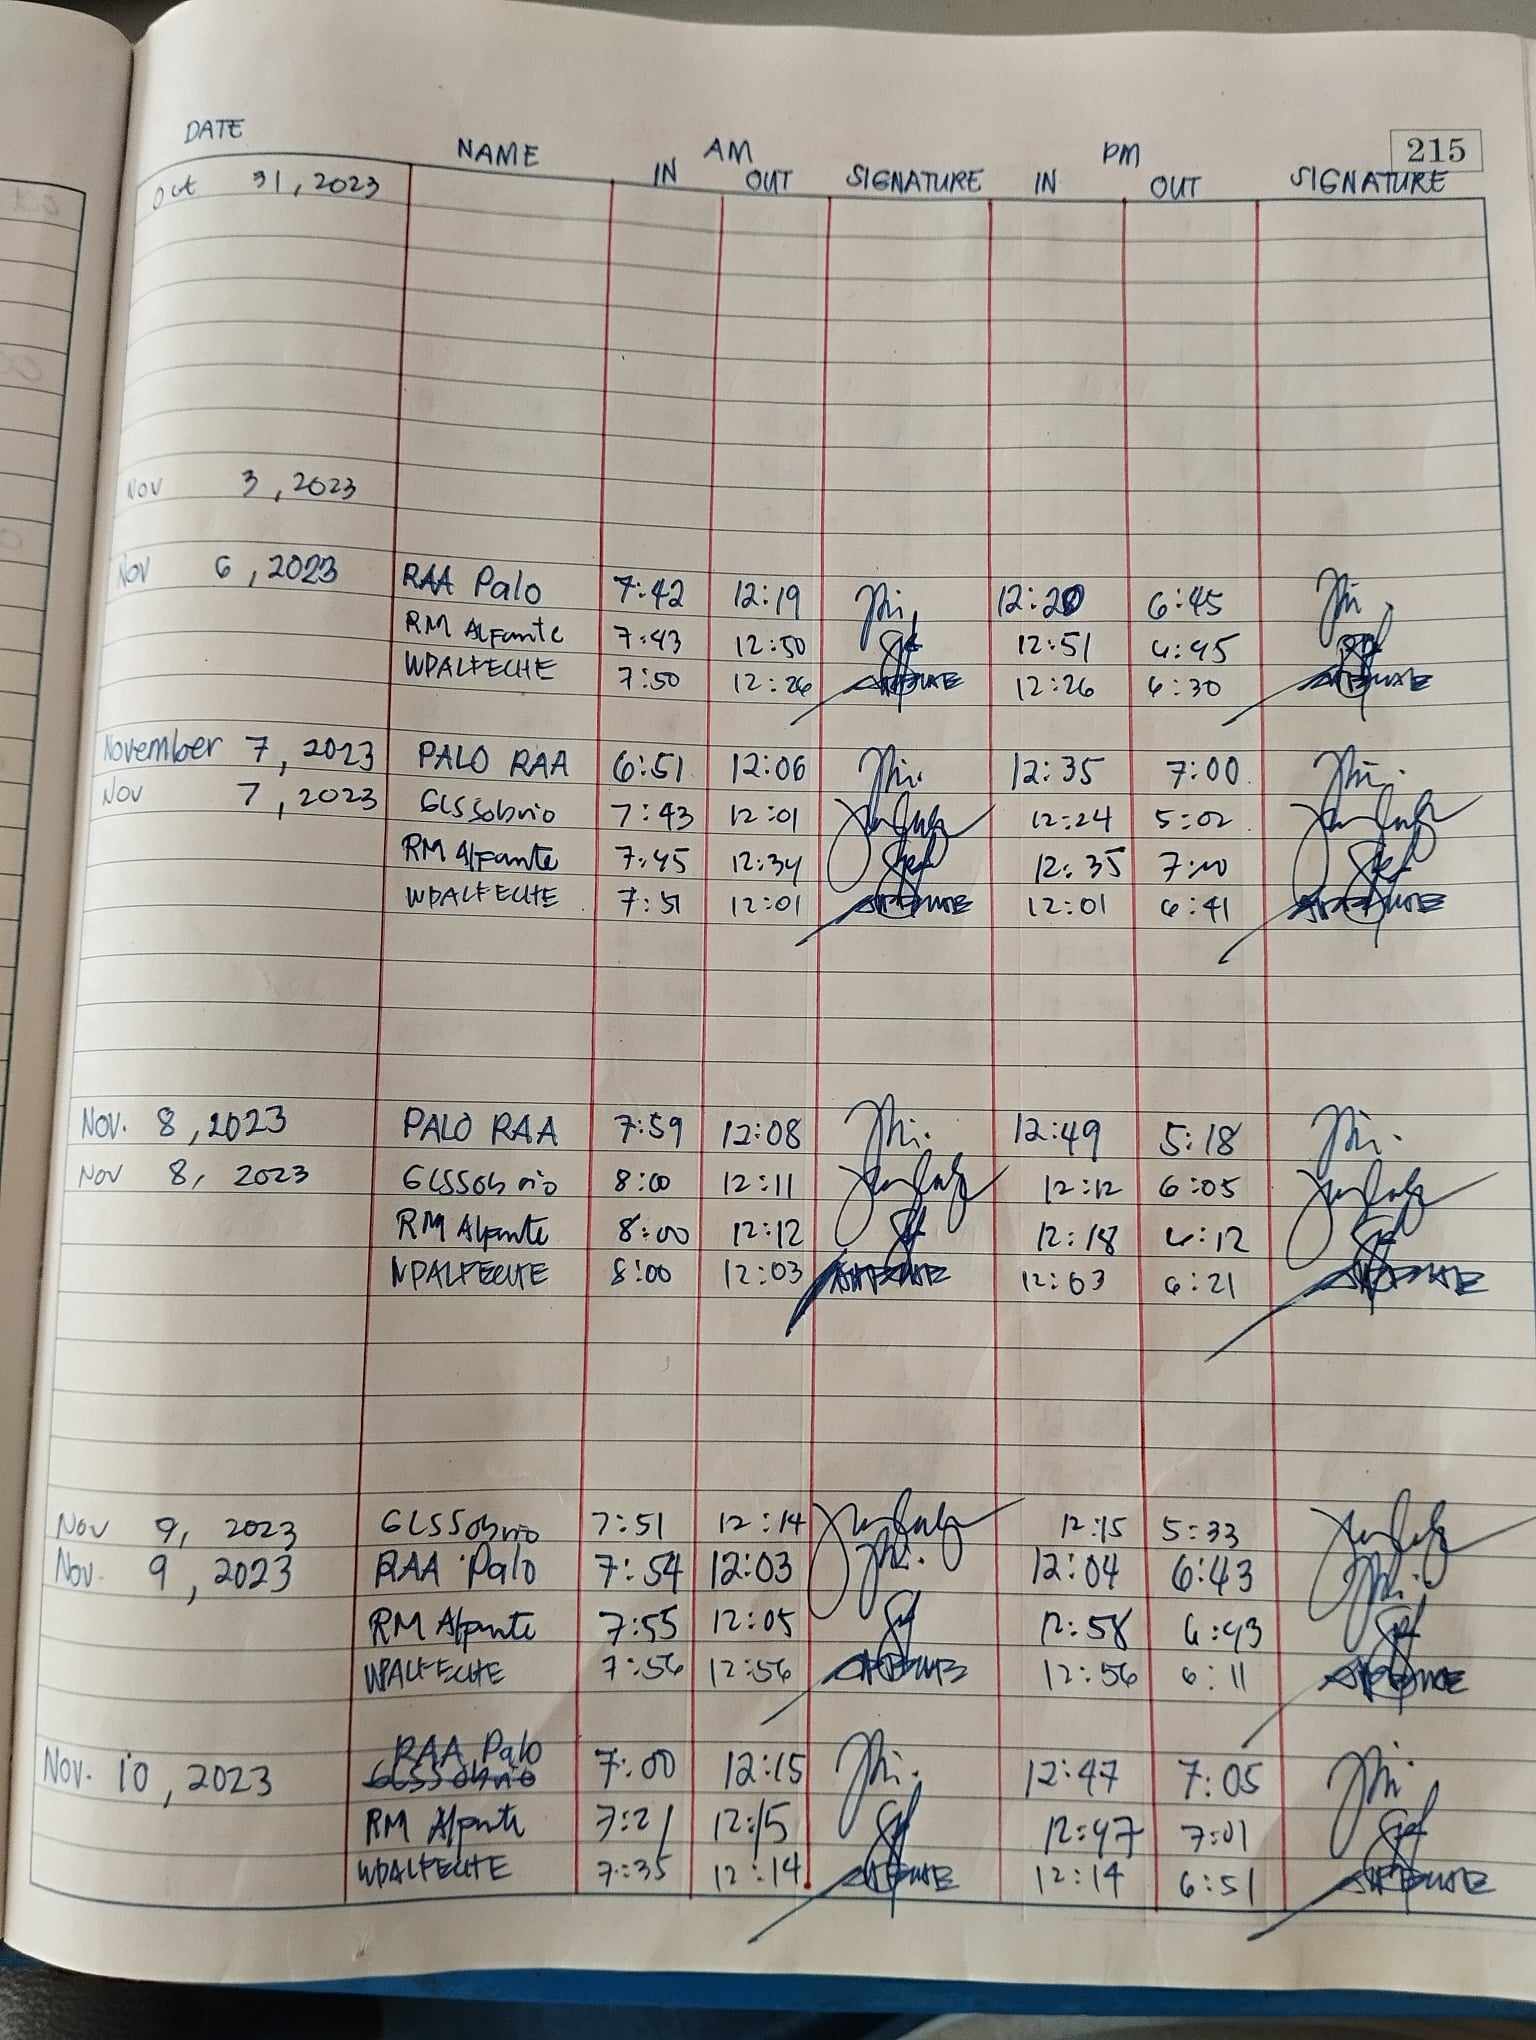 DATE NAME AM PM 215
IN OUT SIGNATURE IN OUT SIGNATURE
Oct 31, 2023
Nov 3, 2023
Nov 6, 2023 RAA Palo 7:42 12:19 12:20 6:45
RM Alfante 7:43 12:50 12:51 6:45
WPALFECHE 7:50 12:26 12:26 6:30
November 7, 2023 PALO RAA 6:51 12:06 12:35 7:00
Nov 7, 2023 GLSSobrio 7:43 12:01 12:24 5:02
RM Alfante 7:45 12:34 12:35 7:00
WPALFECHE 7:51 12:01 12:01 6:41
Nov. 8, 2023 PALO RAA 7:59 12:08 12:49 5:18
Nov 8, 2023 GLSSobrio 8:00 12:11 12:12 6:05
RM Alfante 8:00 12:12 12:18 6:12
WPALFECHE 8:00 12:03 12:03 6:21
Nov 9, 2023 GLSSobrio 7:51 12:14 12:15 5:33
Nov. 9, 2023 RAA Palo 7:54 12:03 12:04 6:43
RM Alfante 7:55 12:05 12:58 6:43
WPALFECHE 7:56 12:56 12:56 6:11
Nov. 10, 2023 RAA Palo 7:00 12:15 12:47 7:05
GLSSobrio
RM Alfante 7:21 12:15 12:47 7:01
WPALFECHE 7:35 12:14 12:14 6:51